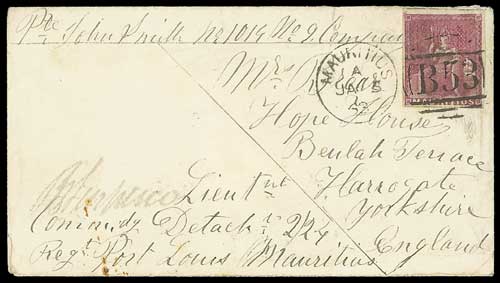 Pte John Smith No 1019 No 9 Company
MAURITIUS
A
JA 5
63
B53
MAURITIUS
Mrs
Hope House
Beulah Terrace
Harrogate
Yorkshire
England
Lieutnt
Commdg Detacht 2/24
Regt Port Louis Mauritius